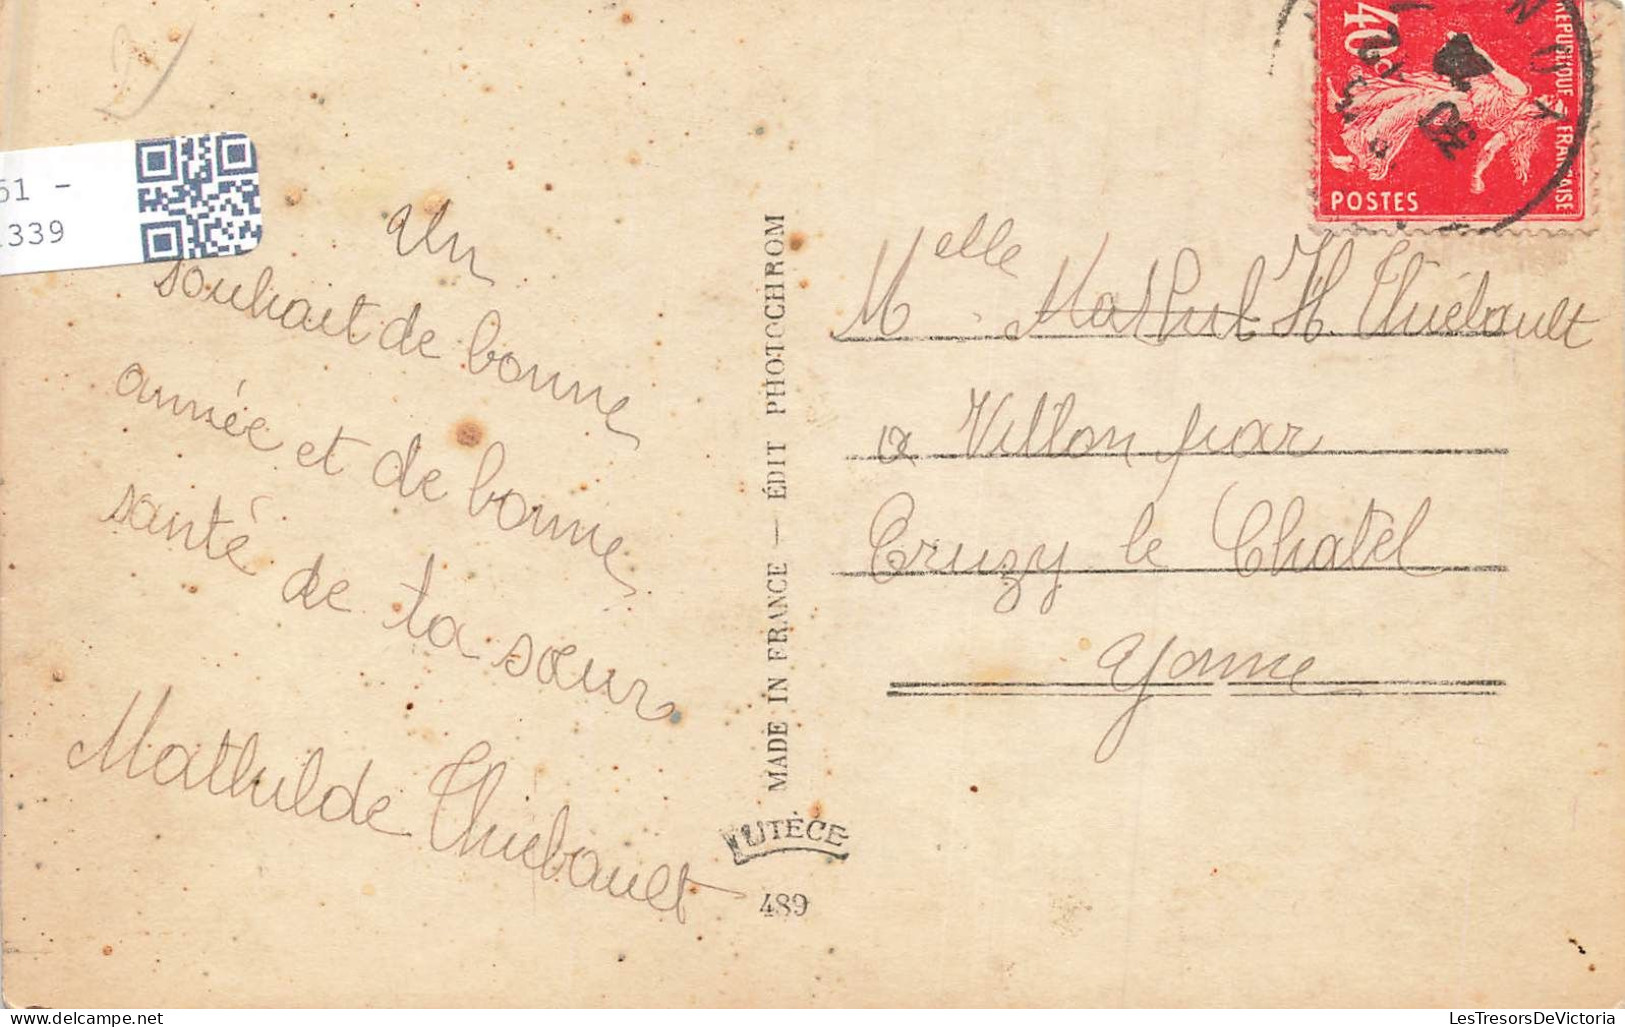 61 -
1339
Un
souhait de bonne
année et de bonne
santé de ta sœur
Mathilde Thiébault
MADE IN FRANCE — ÉDIT PHOTOCHROM
LUTÈCE
489
40c
REPUBLIQUE FRANÇAISE
POSTES
Melle H. Thiébault
a Villon par
Cruzy le Chatel
Yonne
LesTresorsDeVictoria